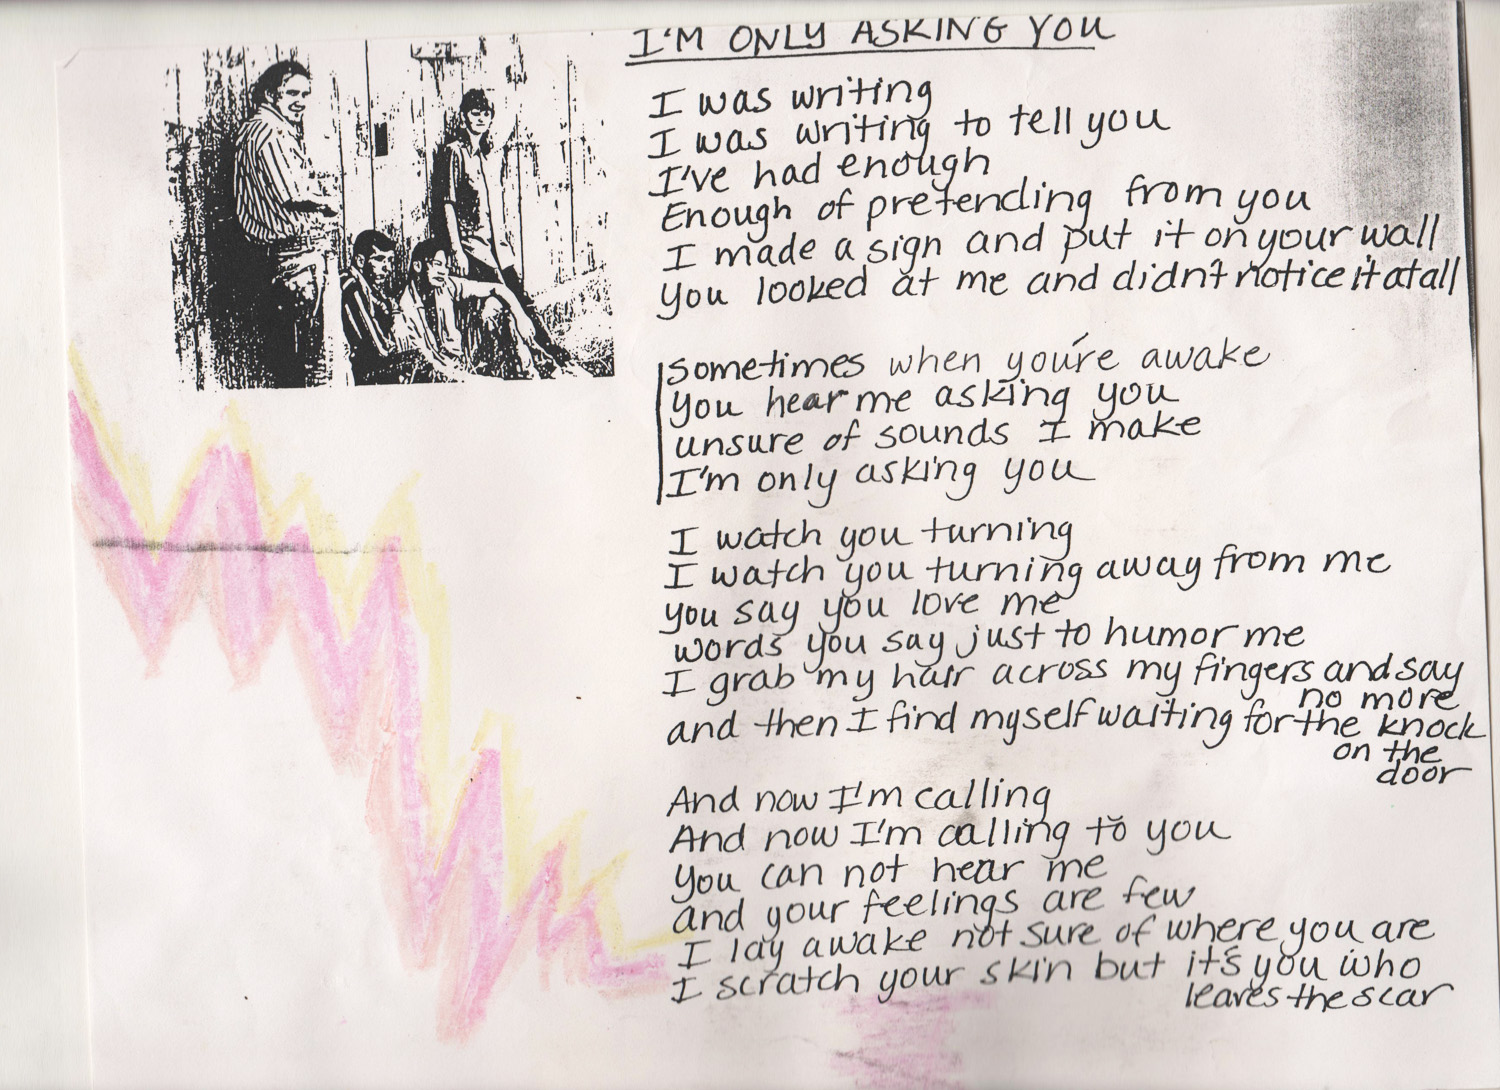 I'M ONLY ASKING YOU
I was writing
I was writing to tell you
I've had enough
Enough of pretending from you
I made a sign and put it on your wall
you looked at me and didn't notice it at all
sometimes when you're awake
you hear me asking you
unsure of sounds I make
I'm only asking you
I watch you turning
I watch you turning away from me
you say you love me
words you say just to humor me
I grab my hair across my fingers and say
no more
and then I find myself waiting for the knock
on the
door
And now I'm calling
And now I'm calling to you
you can not hear me
and your feelings are few
I lay awake not sure of where you are
I scratch your skin but it's you who
leaves the scar